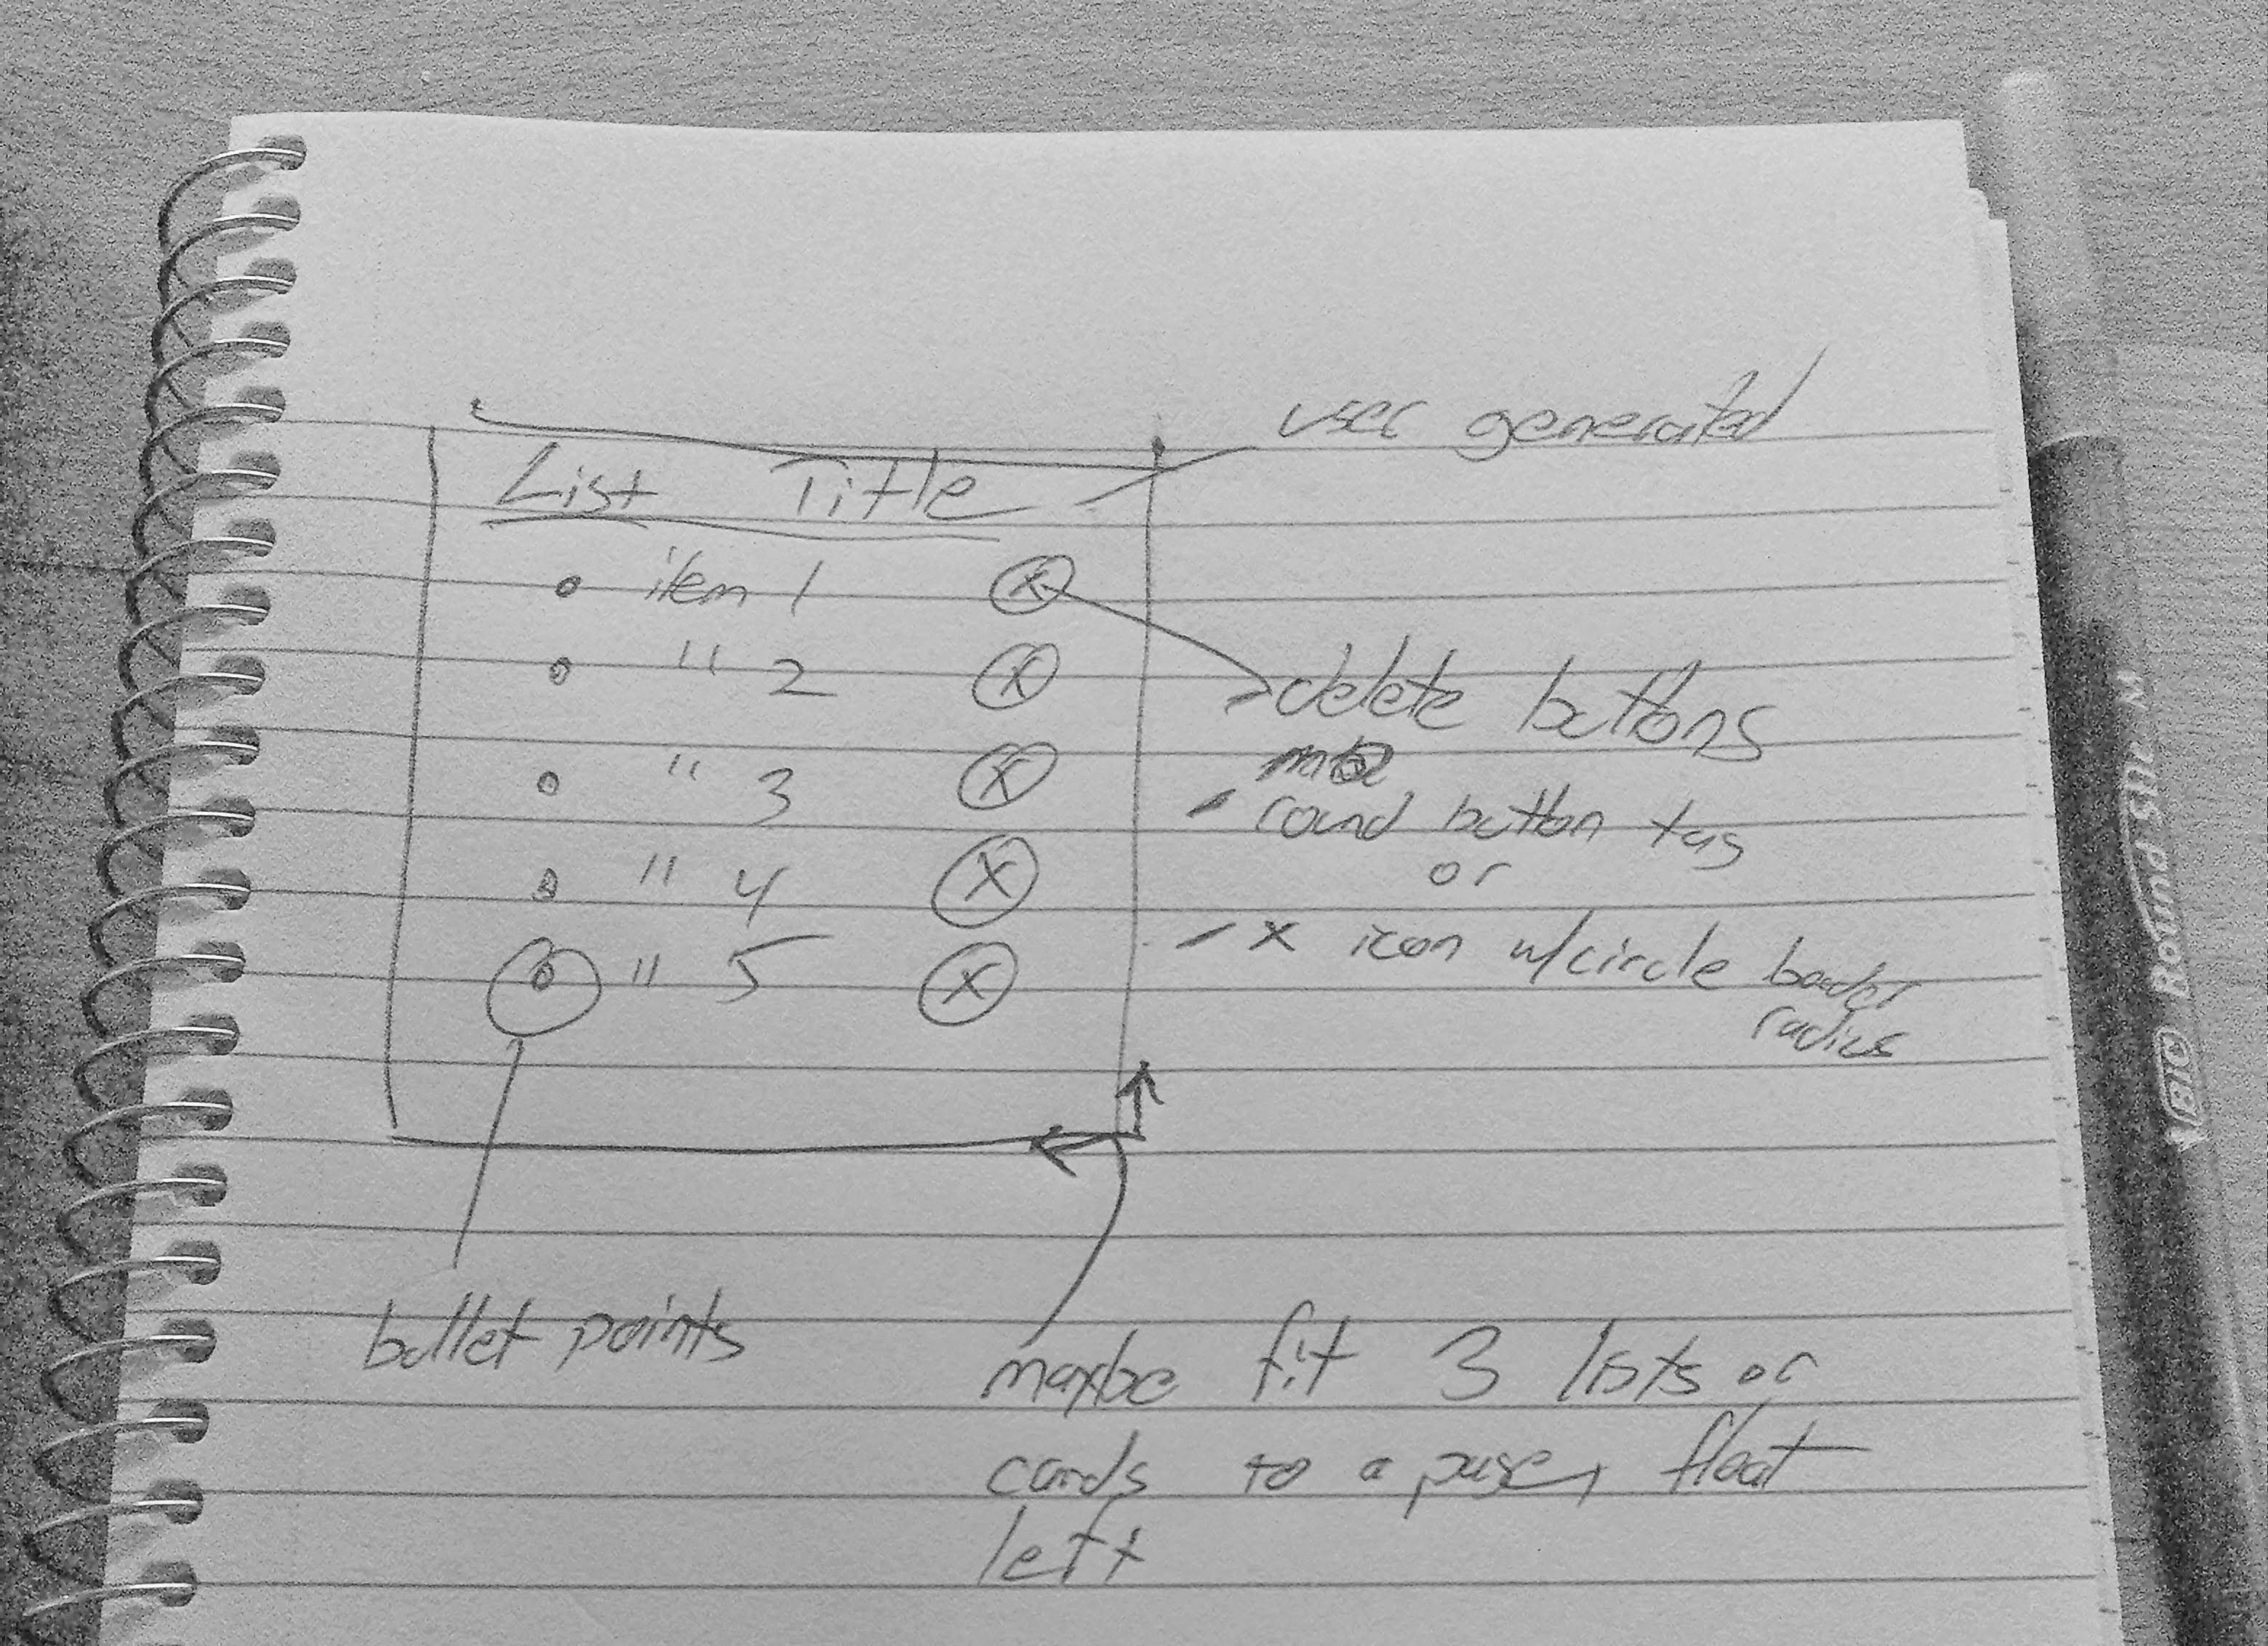 user generated
List Title
○ item 1 ⓧ
○ " 2 ⓧ
○ " 3 ⓧ
○ " 4 ⓧ
○ " 5 ⓧ
- delete buttons
- round button tag
or
- x icon w/circle border
radius
bullet points
maybe fit 3 lists or
cards to a page, float
left
BIC Round Stic M